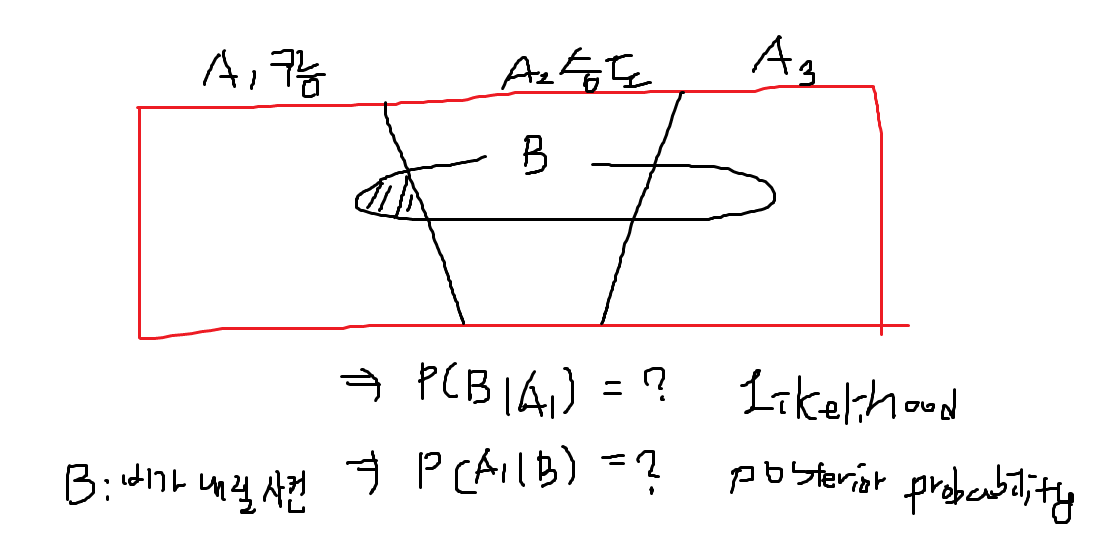 A₁ 구름 A₂ 습도 A₃
B
⇒ P(B|A₁) = ? Likelihood
B: 비가 내릴 사건 ⇒ P(A₁|B) = ? posterior probability